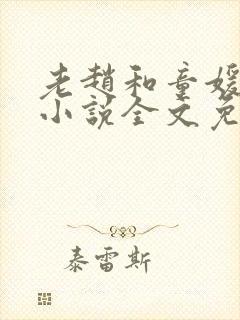 老赵和童媛
小說全文免
泰雷斯